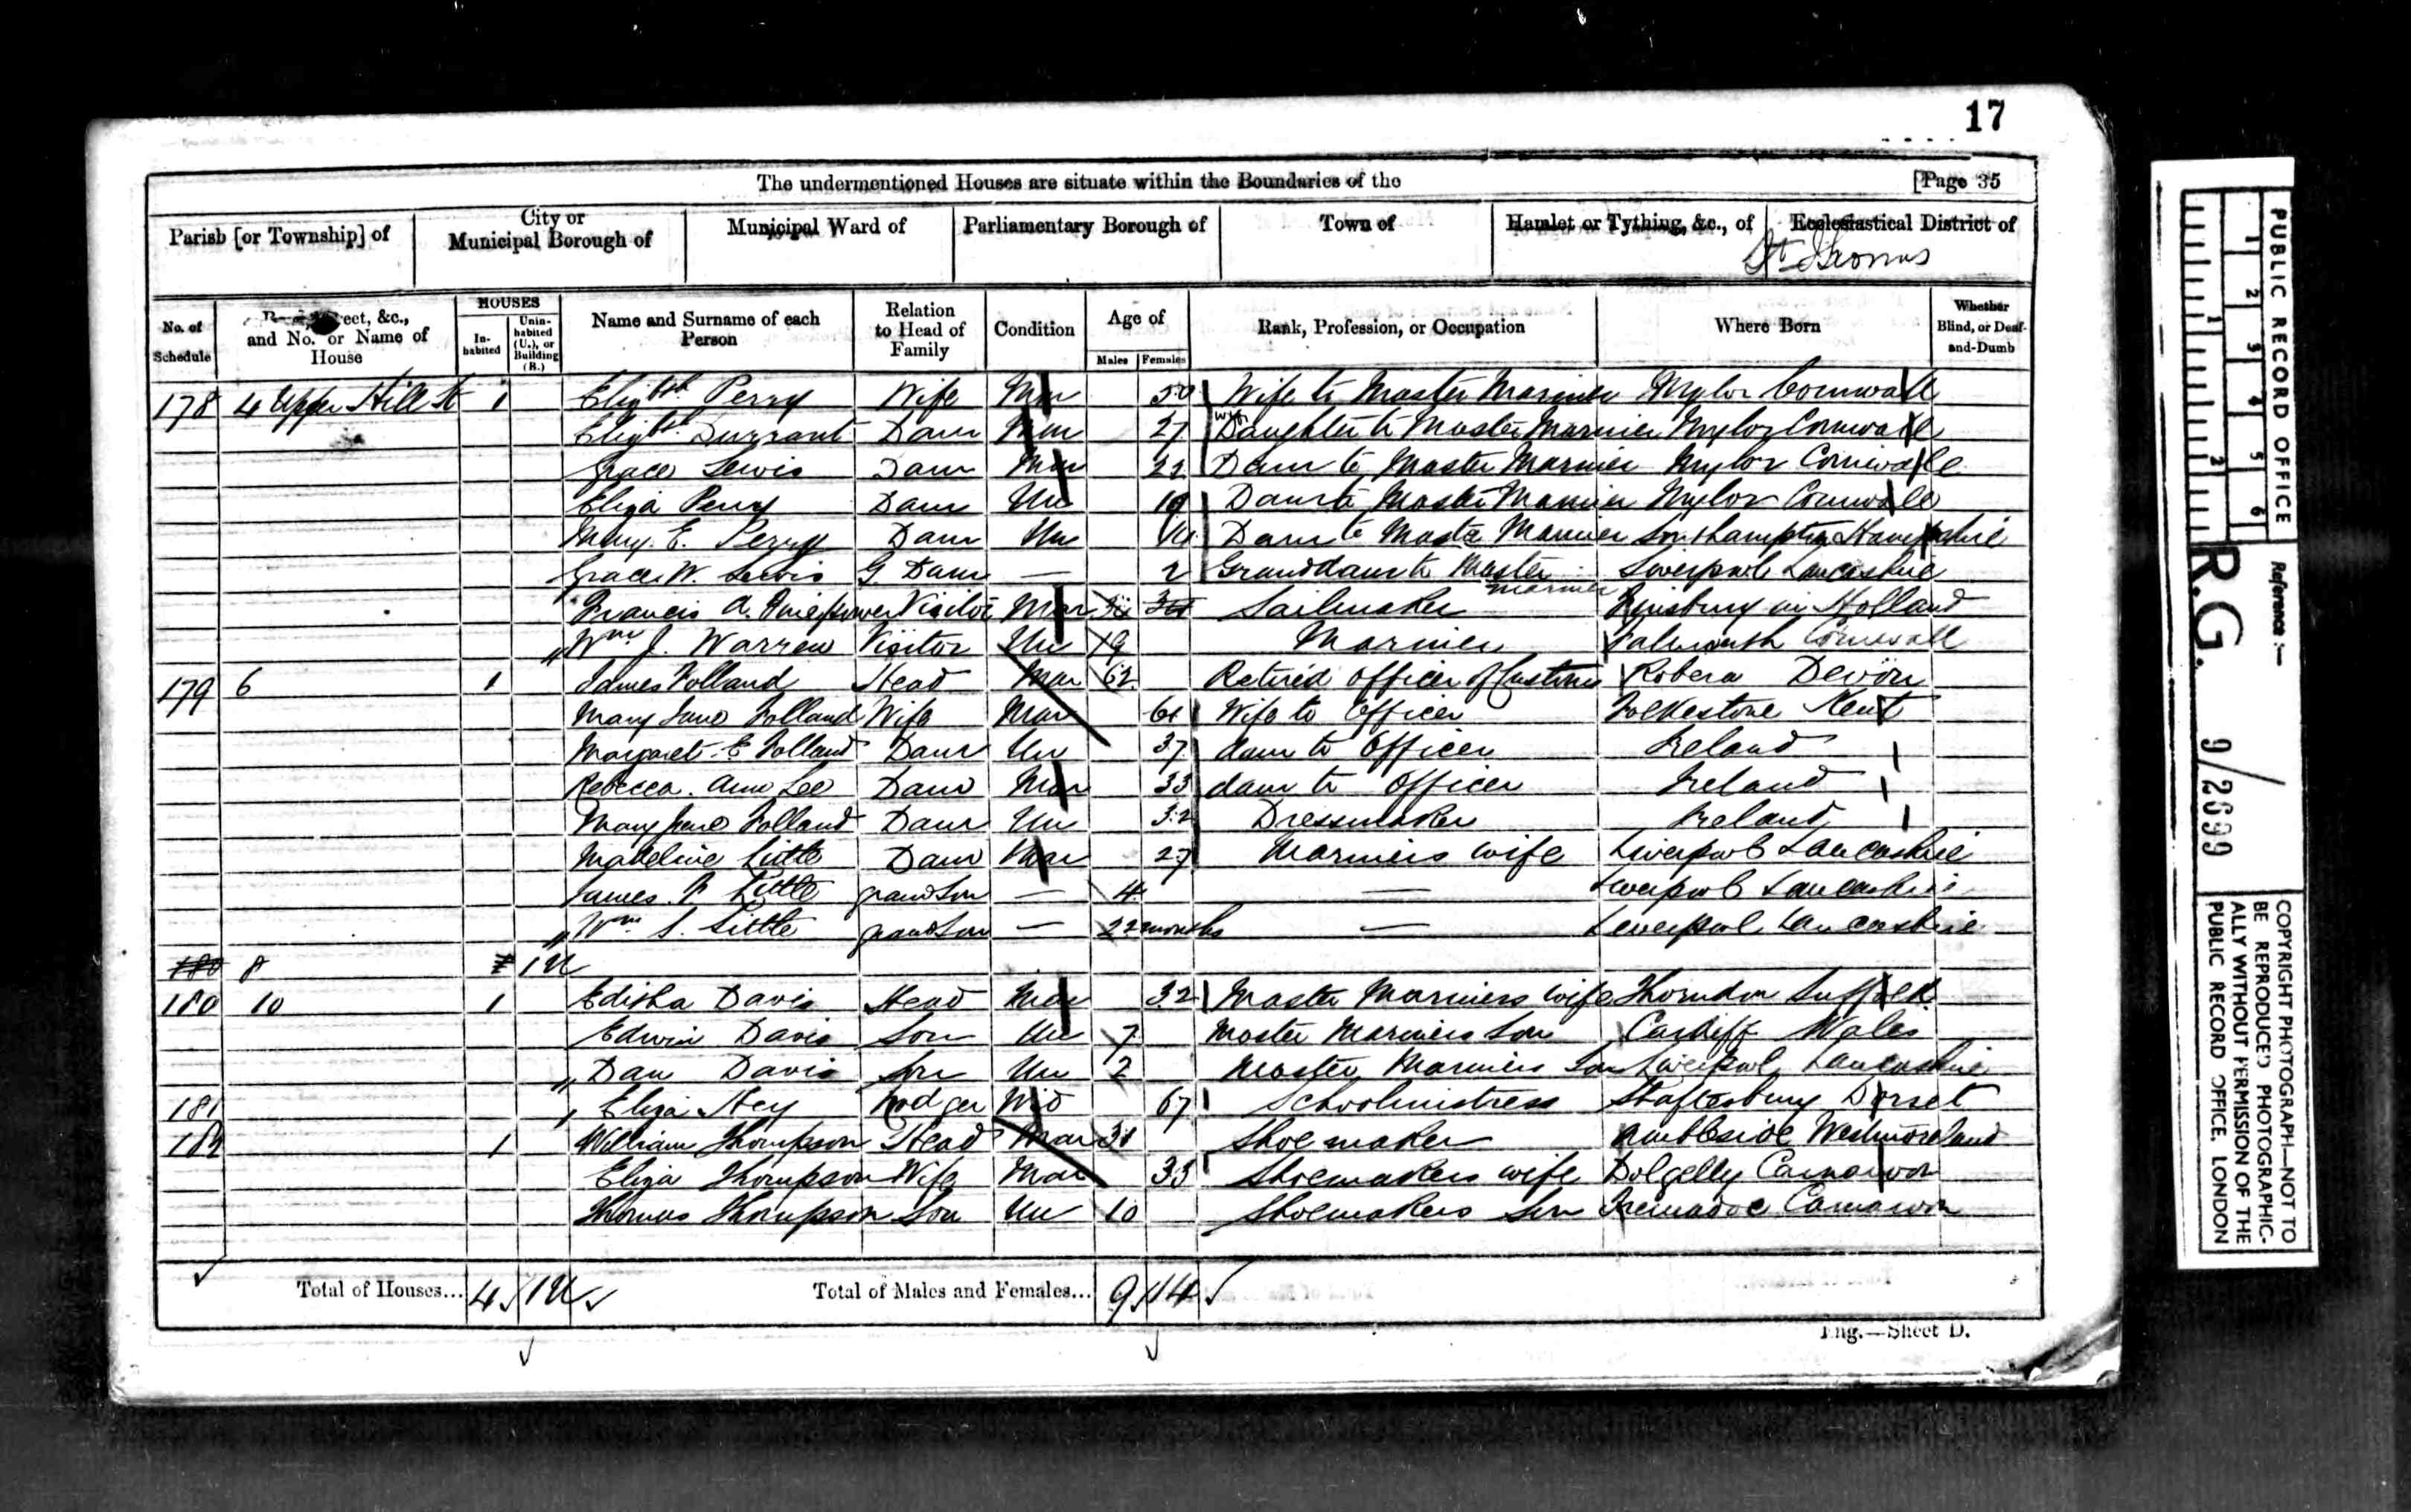 17
The undermentioned Houses are situate within the Boundaries of the [Page 35
Parish [or Township] of City or Municipal Borough of Municipal Ward of Parliamentary Borough of Town of Hamlet or Tything, &c., of Ecclesiastical District of
St Thomas
No. of Schedule eet, &c., and No. or Name of House HOUSES In-habited Unin-habited (U.), or Building (B.) Name and Surname of each Person Relation to Head of Family Condition Age of Males Females Rank, Profession, or Occupation Where Born Whether Blind, or Deaf-and-Dumb
178 4 Upper Hill St 1 Elizbth Perry Wife Mar 50 Wife to Master Mariner Mylor Cornwall
Elizbth Durrant Daur Mar 27 Daughter to Master Mariner Mylor Cornwall
Grace Lewis Daur Mar 22 Daur to Master Mariner Mylor Cornwall
Eliza Perry Daur Un 19 Daur to Master Mariner Mylor Cornwall
Mary E. Perry Daur Un Daur to Master Mariner Southampton Hampshire
Grace W. Lewis G Daur — 2 Granddaur to Master Mariner Liverpool Lancashire
Francis A. Visitor Mar Sailmaker in Holland
Wm J. Warren Visitor Un 19 Mariner Falmouth Cornwall
179 6 1 James Folland Head Mar 62 Retired Officer of Customs Devon
Mary Jane Folland Wife Mar 61 Wife to Officer Folkestone Kent
Margaret E Folland Daur Un 37 daur to Officer Ireland
Rebecca Ann Lee Daur Mar 33 daur to Officer Ireland
Mary Jane Folland Daur Un 32 Dressmaker Ireland
Madeline Little Daur Mar 27 Mariners wife Liverpool Lancashire
James Little grandson — 4 — Liverpool Lancashire
Wm S. Little grandson — 22 months — Liverpool Lancashire
180 8 1U
180 10 1 Editha Davis Head Mar 32 Master Mariners wife Thorndon Suffolk
Edwin Davis Son Un 7 Master Mariners Son Cardiff Wales
Dan Davis Son Un 2 Master Mariners Son Liverpool Lancashire
181 Eliza Hey Lodger Wid 67 Schoolmistress Shaftesbury Dorset
182 1 William Thompson Head Mar 31 Shoemaker Ambleside Westmoreland
Eliza Thompson Wife Mar 33 Shoemakers wife Dolgelly Carnarvon
Thomas Thompson Son Un 10 Shoemakers Son Tremadoc Carnarvon
Total of Houses... 4 1U Total of Males and Females... 9 14
Eng.—Sheet D.
PUBLIC RECORD OFFICE
1 2 3 4 5 6
1 2
Reference :—
R.G. 9/2699
COPYRIGHT PHOTOGRAPH—NOT TO BE REPRODUCED PHOTOGRAPHIC-ALLY WITHOUT PERMISSION OF THE PUBLIC RECORD OFFICE, LONDON